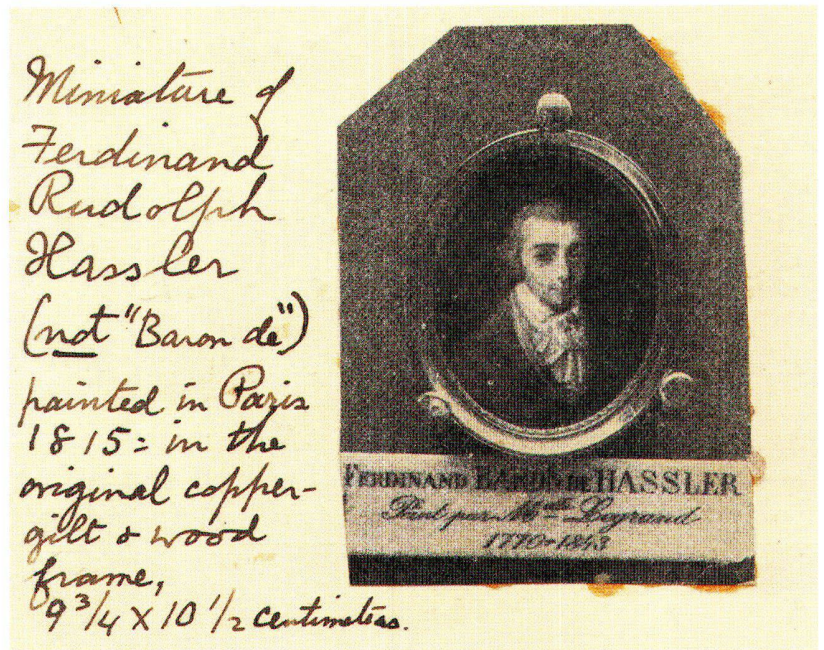 Miniature of
Ferdinand
Rudolph
Hassler
(not "Baron de")
painted in Paris
1815: in the
original copper-
gilt & wood
frame,
9 3/4 X 10 1/2 centimeters.
FERDINAND BARON DE HASSLER
Peint par Mdlle Legrand
1770-1843